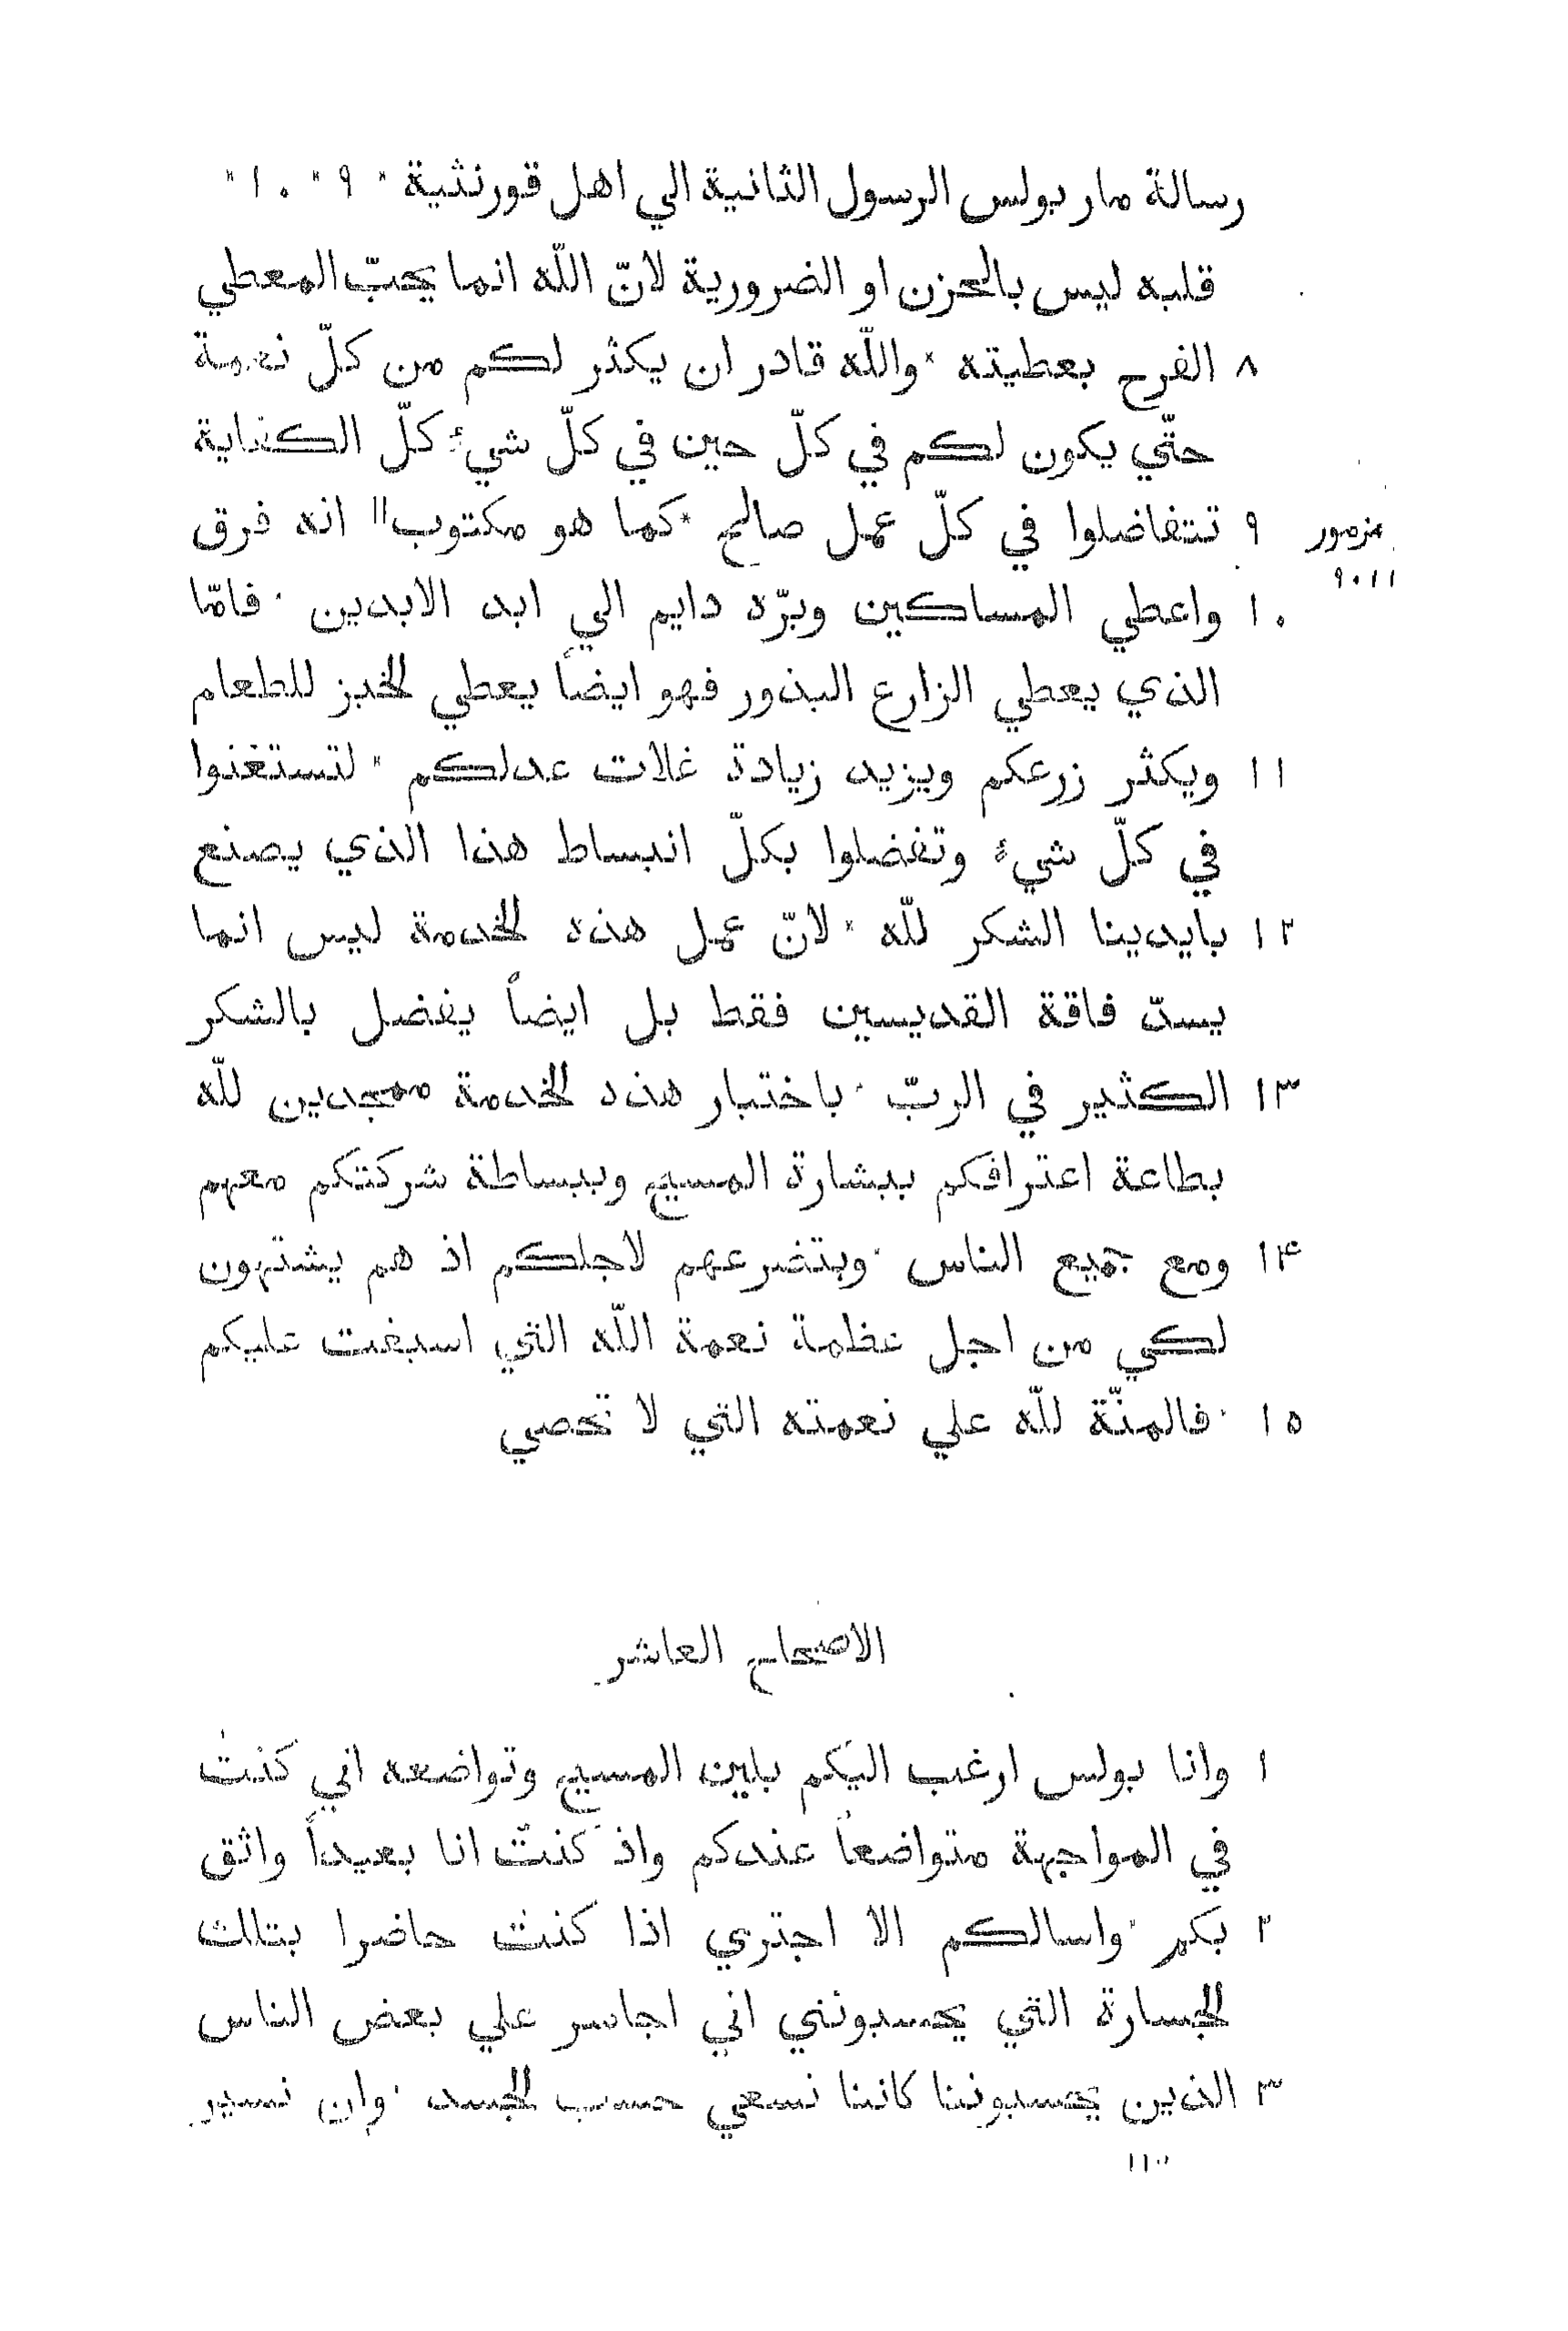 رسالة مار بولس الرسول الثانية الي اهل قورنثية * ٩ * ١٠ *
قلبه ليس بالحزن او الضرورية لانّ اللّه انما يحبّ المعطي
٨ الفرح بعطيته * واللّه قادر ان يكثر لكم من كلّ نعمة
حتّي يكون لكم في كلّ حين في كلّ شيء كلّ الكفاية
٩ تتفاضلوا في كلّ عمل صالح * كما هو مكتوب || انه فرق
مزمور
١٠ واعطي المساكين وبرّه دايم الي ابد الابدين * فامّا
الذي يعطي الزارع البذور فهو ايضاً يعطي الخبز للطعام
١١ ويكثر زرعكم ويزيد زيادة غلات عدلكم * لتستغنوا
في كلّ شيء وتفضلوا بكلّ انبساط هذا الذي يصنع
١٢ بايدينا الشكر للّه * لانّ عمل هذه الخدمة ليس انما
يسدّ فاقة القديسين فقط بل ايضاً يفضل بالشكر
١٣ الكثير في الربّ * باختبار هذه الخدمة ممجدين للّه
بطاعة اعترافكم ببشارة المسيح وببساطة شركتكم معهم
١٤ ومع جميع الناس * وبتضرعهم لاجلكم اذ هم يشتهون
لكي من اجل عظمة نعمة اللّه التي اسبغت عليكم
١٥ * فالمنّة للّه علي نعمته التي لا تحصي
الاصحاح العاشر
١ وانا بولس ارغب اليكم بلين المسيح وتواضعه اني كنت
في المواجهة متواضعاً عندكم واذ كنت انا بعيداً واثق
٢ بكم * واسالكم الا اجتري اذا كنت حاضرا بتلك
الجسارة التي يحسبونني اني اجاسر علي بعض الناس
٣ الذين يحسبوننا كاننا نسعي حسب الجسد * وان نسير